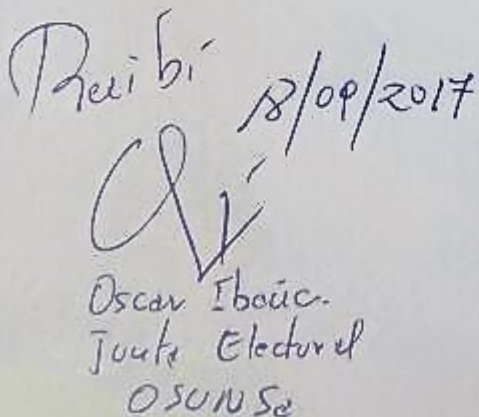 Recibí
18/09/2017
Oscar
Junta Electoral
OSUNSa